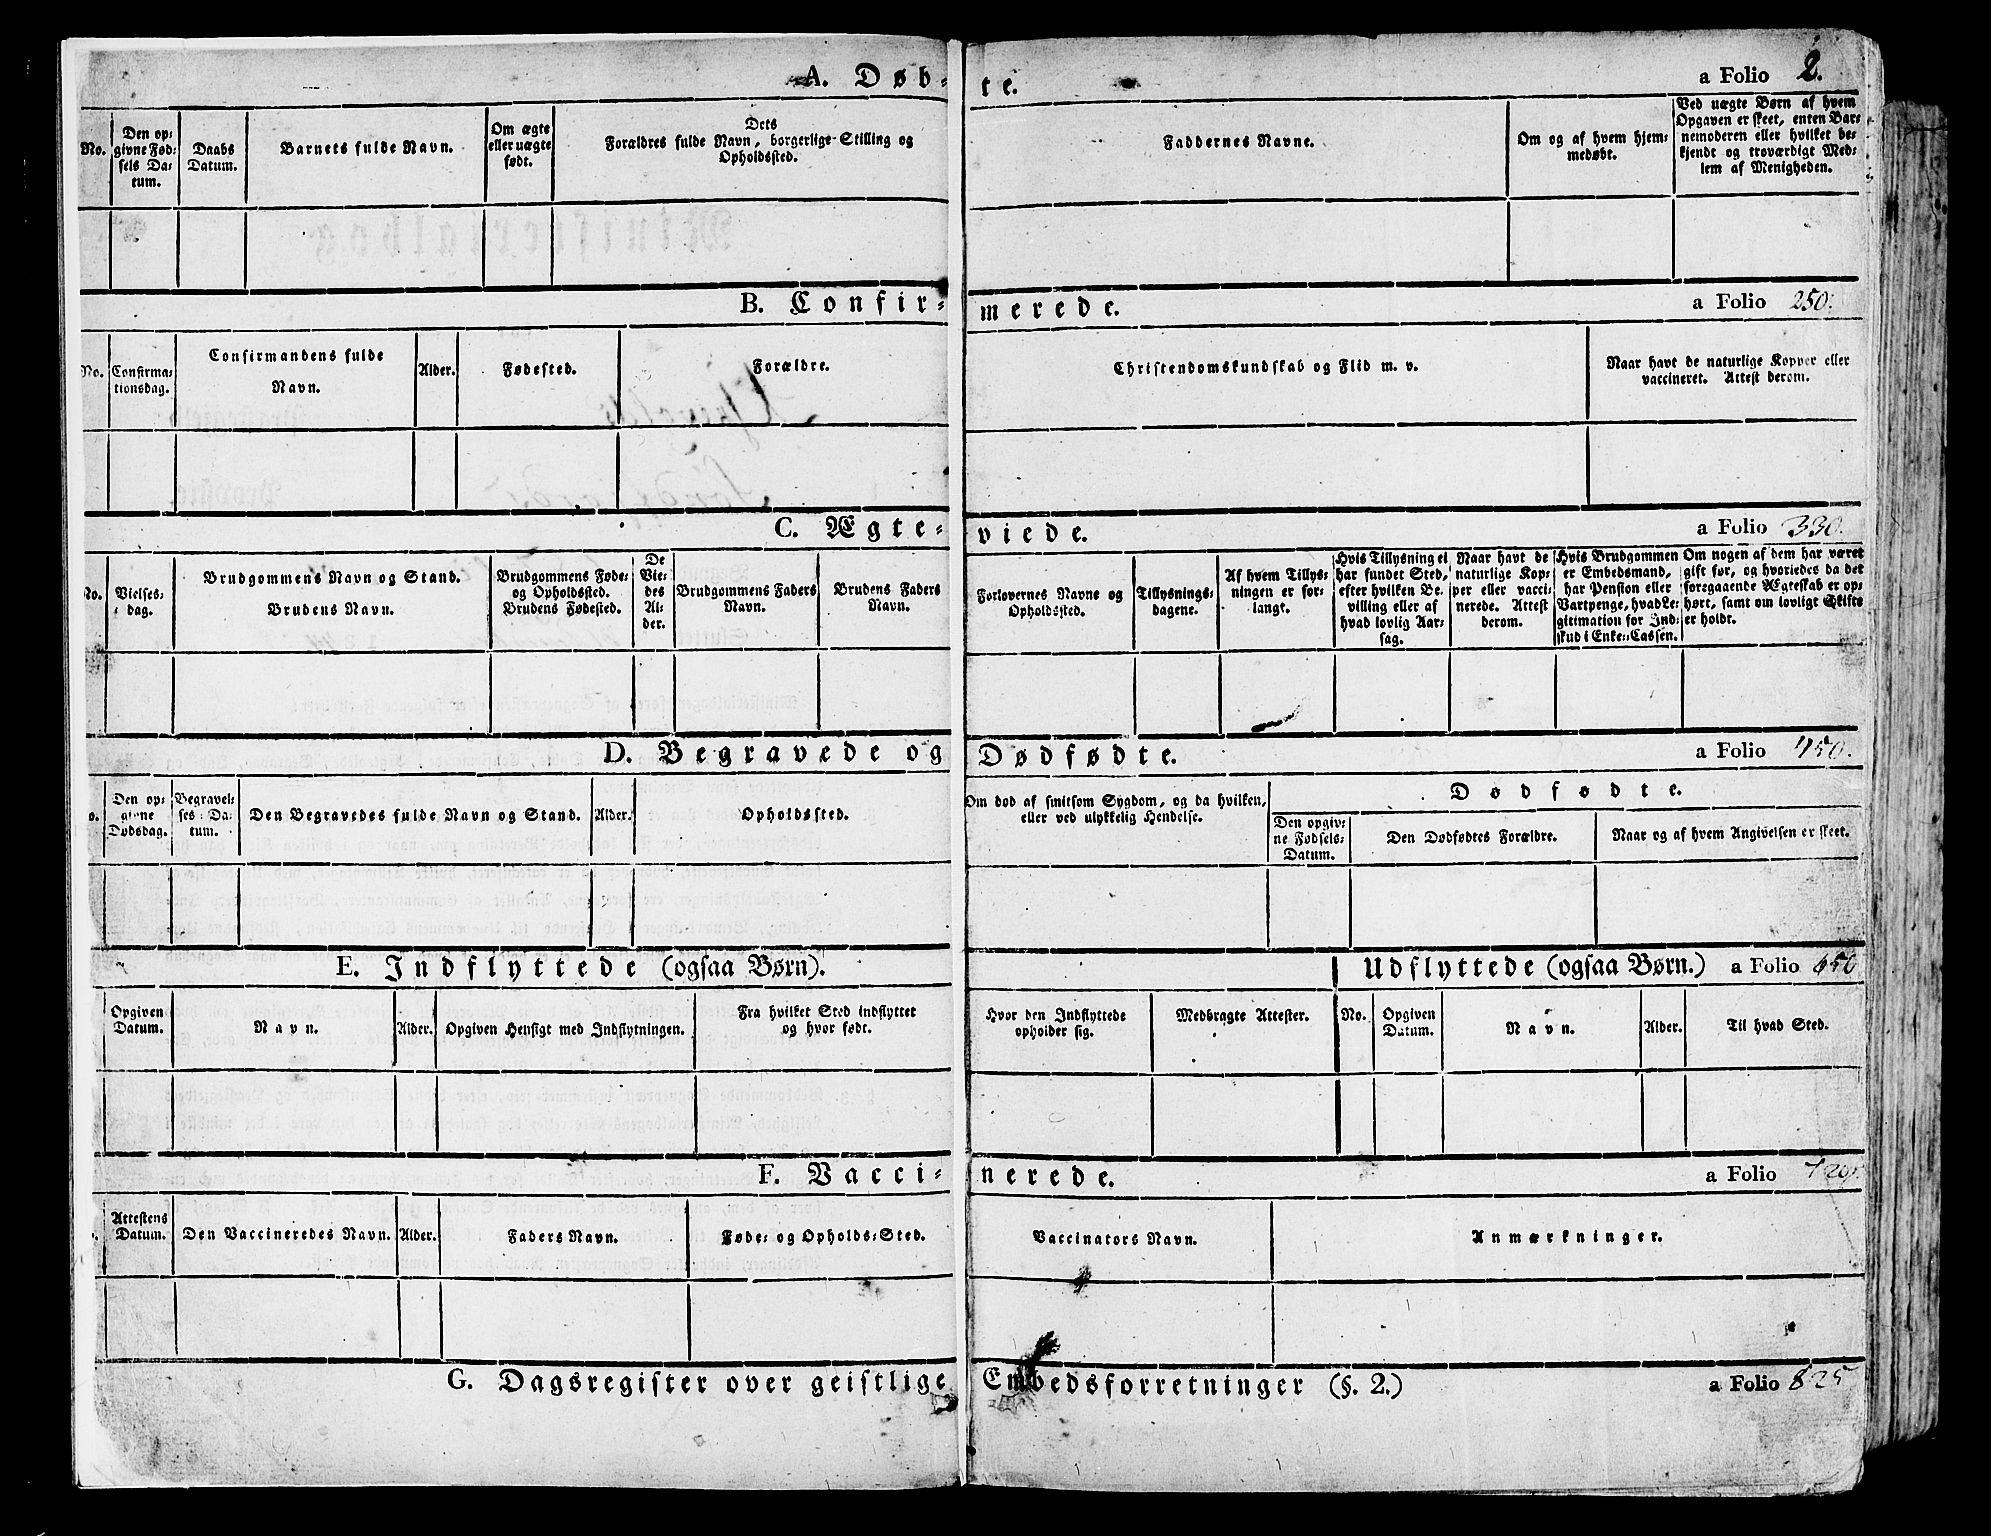 A. Døb- te. a Folio 2.
No.
Den op-
givne Fød-
sels Da-
tum.
Daabs
Datum.
Barnets fulde Navn.
Om ægte
eller uægte
født.
Dets
Forældres fulde Navn, borgerlige Stilling og
Opholdssted.
Faddernes Navne.
Om og af hvem hjem-
medøbt.
Ved uægte Børn af hvem
Opgaven er skeet, enten Bar-
nemoderen eller hvilket be-
kjendt og troværdigt Med-
lem af Menigheden.
B. Confir- merede. a Folio 250.
No.
Confirma-
tionsdag.
Confirmandens fulde
Navn.
Alder.
Fødested.
Forældre.
Christendomskundskab og Flid m. v.
Naar havt de naturlige Kopper eller
vaccineret. Attest derom.
C. Ægte- viede. a Folio 330.
No.
Vielses-
dag.
Brudgommens Navn og Stand.
Brudens Navn.
Brudgommens Føde-
og Opholdssted.
Brudens Fødested.
De
Vie-
des
Al-
der.
Brudgommens Faders
Navn.
Brudens Faders
Navn.
Forlovernes Navne og
Opholdssted.
Tillysnings-
dagene.
Af hvem Tillys-
ningen er for-
langt.
Hvis Tillysning ei
har fundet Sted,
efter hvilken Be-
villing eller af
hvad lovlig Aar-
sag.
Naar havt de
naturlige Kop-
per eller vacci-
nerede. Attest
derom.
Hvis Brudgommen
er Embedsmand,
har Pension eller
Vartpenge, hvad Le-
gitimation for Ind-
skud i Enke-Cassen.
Om nogen af dem har været
gift før, og hvoriedes da det
foregaaende Ægteskab er op-
hørt, samt om lovligt Skifte
er holdt.
D. Begravede og Dødfødte. a Folio 450.
o.
Den op-
givne
Dødsdag.
Begravel-
ses-Da-
tum.
Den Begravedes fulde Navn og Stand.
Alder.
Opholdssted.
Om død af smitsom Sygdom, og da hvilken,
eller ved ulykkelig Hendelse.
Dødfødte.
Den opgiv-
ne Fødsels-
Datum.
Den Dødfødtes Forældre.
Naar og af hvem Angivelsen er skeet.
E. Indflyttede (ogsaa Børn). Udflyttede (ogsaa Børn.) a Folio 650
Opgiven
Datum.
Navn.
Alder.
Opgiven Hensigt med Indflytningen.
Fra hvilket Sted indflyttet
og hvor født.
Hvor den Indflyttede
opholder sig.
Medbragte Attester.
No.
Opgiven
Datum.
Navn.
Alder.
Til hvad Sted.
F. Vacci- nerede. a Folio 720.
Attestens
Datum.
Den Vaccineredes Navn.
Alder.
Faders Navn.
Føde- og Opholds-Sted.
Vaccinators Navn.
Anmærkninger.
G. Dagsregister over geistlige Embedsforretninger (§. 2.) a Folio 825